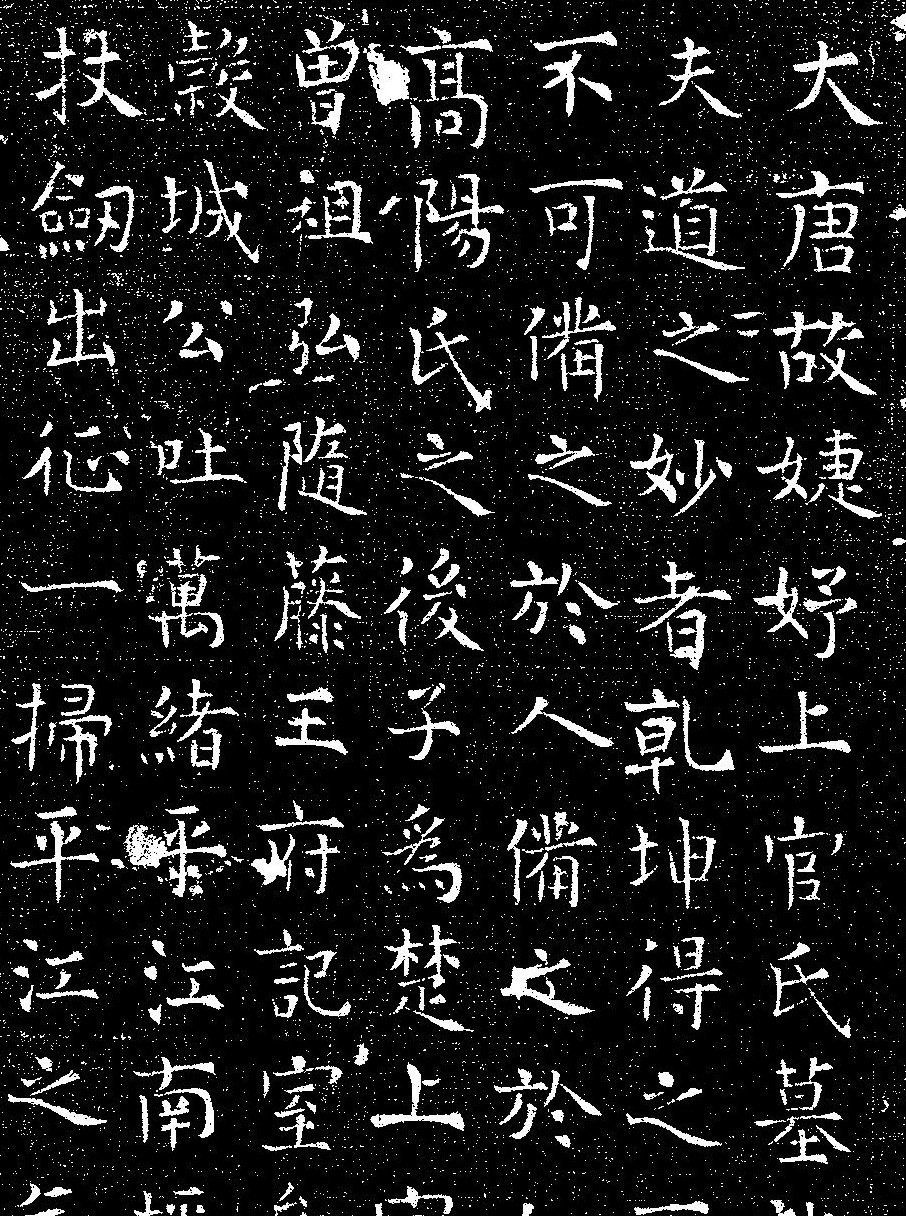 大唐故婕妤上官氏墓
夫道之妙者乾坤得之
不可備之於人備之於
髙陽氏之後子爲楚上
曾祖弘隨藤王府記室
穀城公吐萬緒平江南
扙劒出征一掃平江之